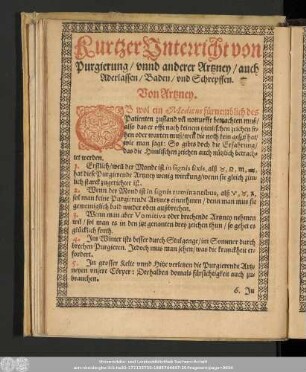 Kurtzer Vnterricht von
Purgierung / vnnd anderer Artzney / auch
Aderlassen / Baden / vnd Schrepffen.
Von Artzney.
OB wol ein Medicus fürnemblich des
Patienten zustand vnd notturfft betrachten muß /
wie man sagt: So gibts doch die Erfahrung /
das die Himlischen zeichen auch nützlich betrach-
tet werden.
1. Erstlich / weil der Mond ist in signis fixis, als ♉, ♌, ♏, ♒,
hat diese Purgierende Artzney wenig würckung / wenn sie gleich zim-
lich starck zugerichtet ist.
2. Wenn der Mond ist in signis ruminantibus, als ♈, ♉, ♑,
sol man keine Purgierende Artzney einnehmen / denn man mus sie
gemeiniglich bald wider oben ausbrechen.
3. Wenn man aber Vomitiva oder brechende Artzney nehmen
wil / sol man es in den itzt genanten drey zeichen thun / so gehet es
glücklich fort.
4. Im Winter ists besser durch Stulgenge / im Sommer durch
brechen Purgieren. Jedoch mus man sehen / was die kranckheit er-
fordert.
5. In grosser Kelte vnnd Hitze verletzen die Purgierende Artz-
neyen vnsere Cörper: Derhalben domals fürsichtigkeit auch zu-
brauchen.
6. In